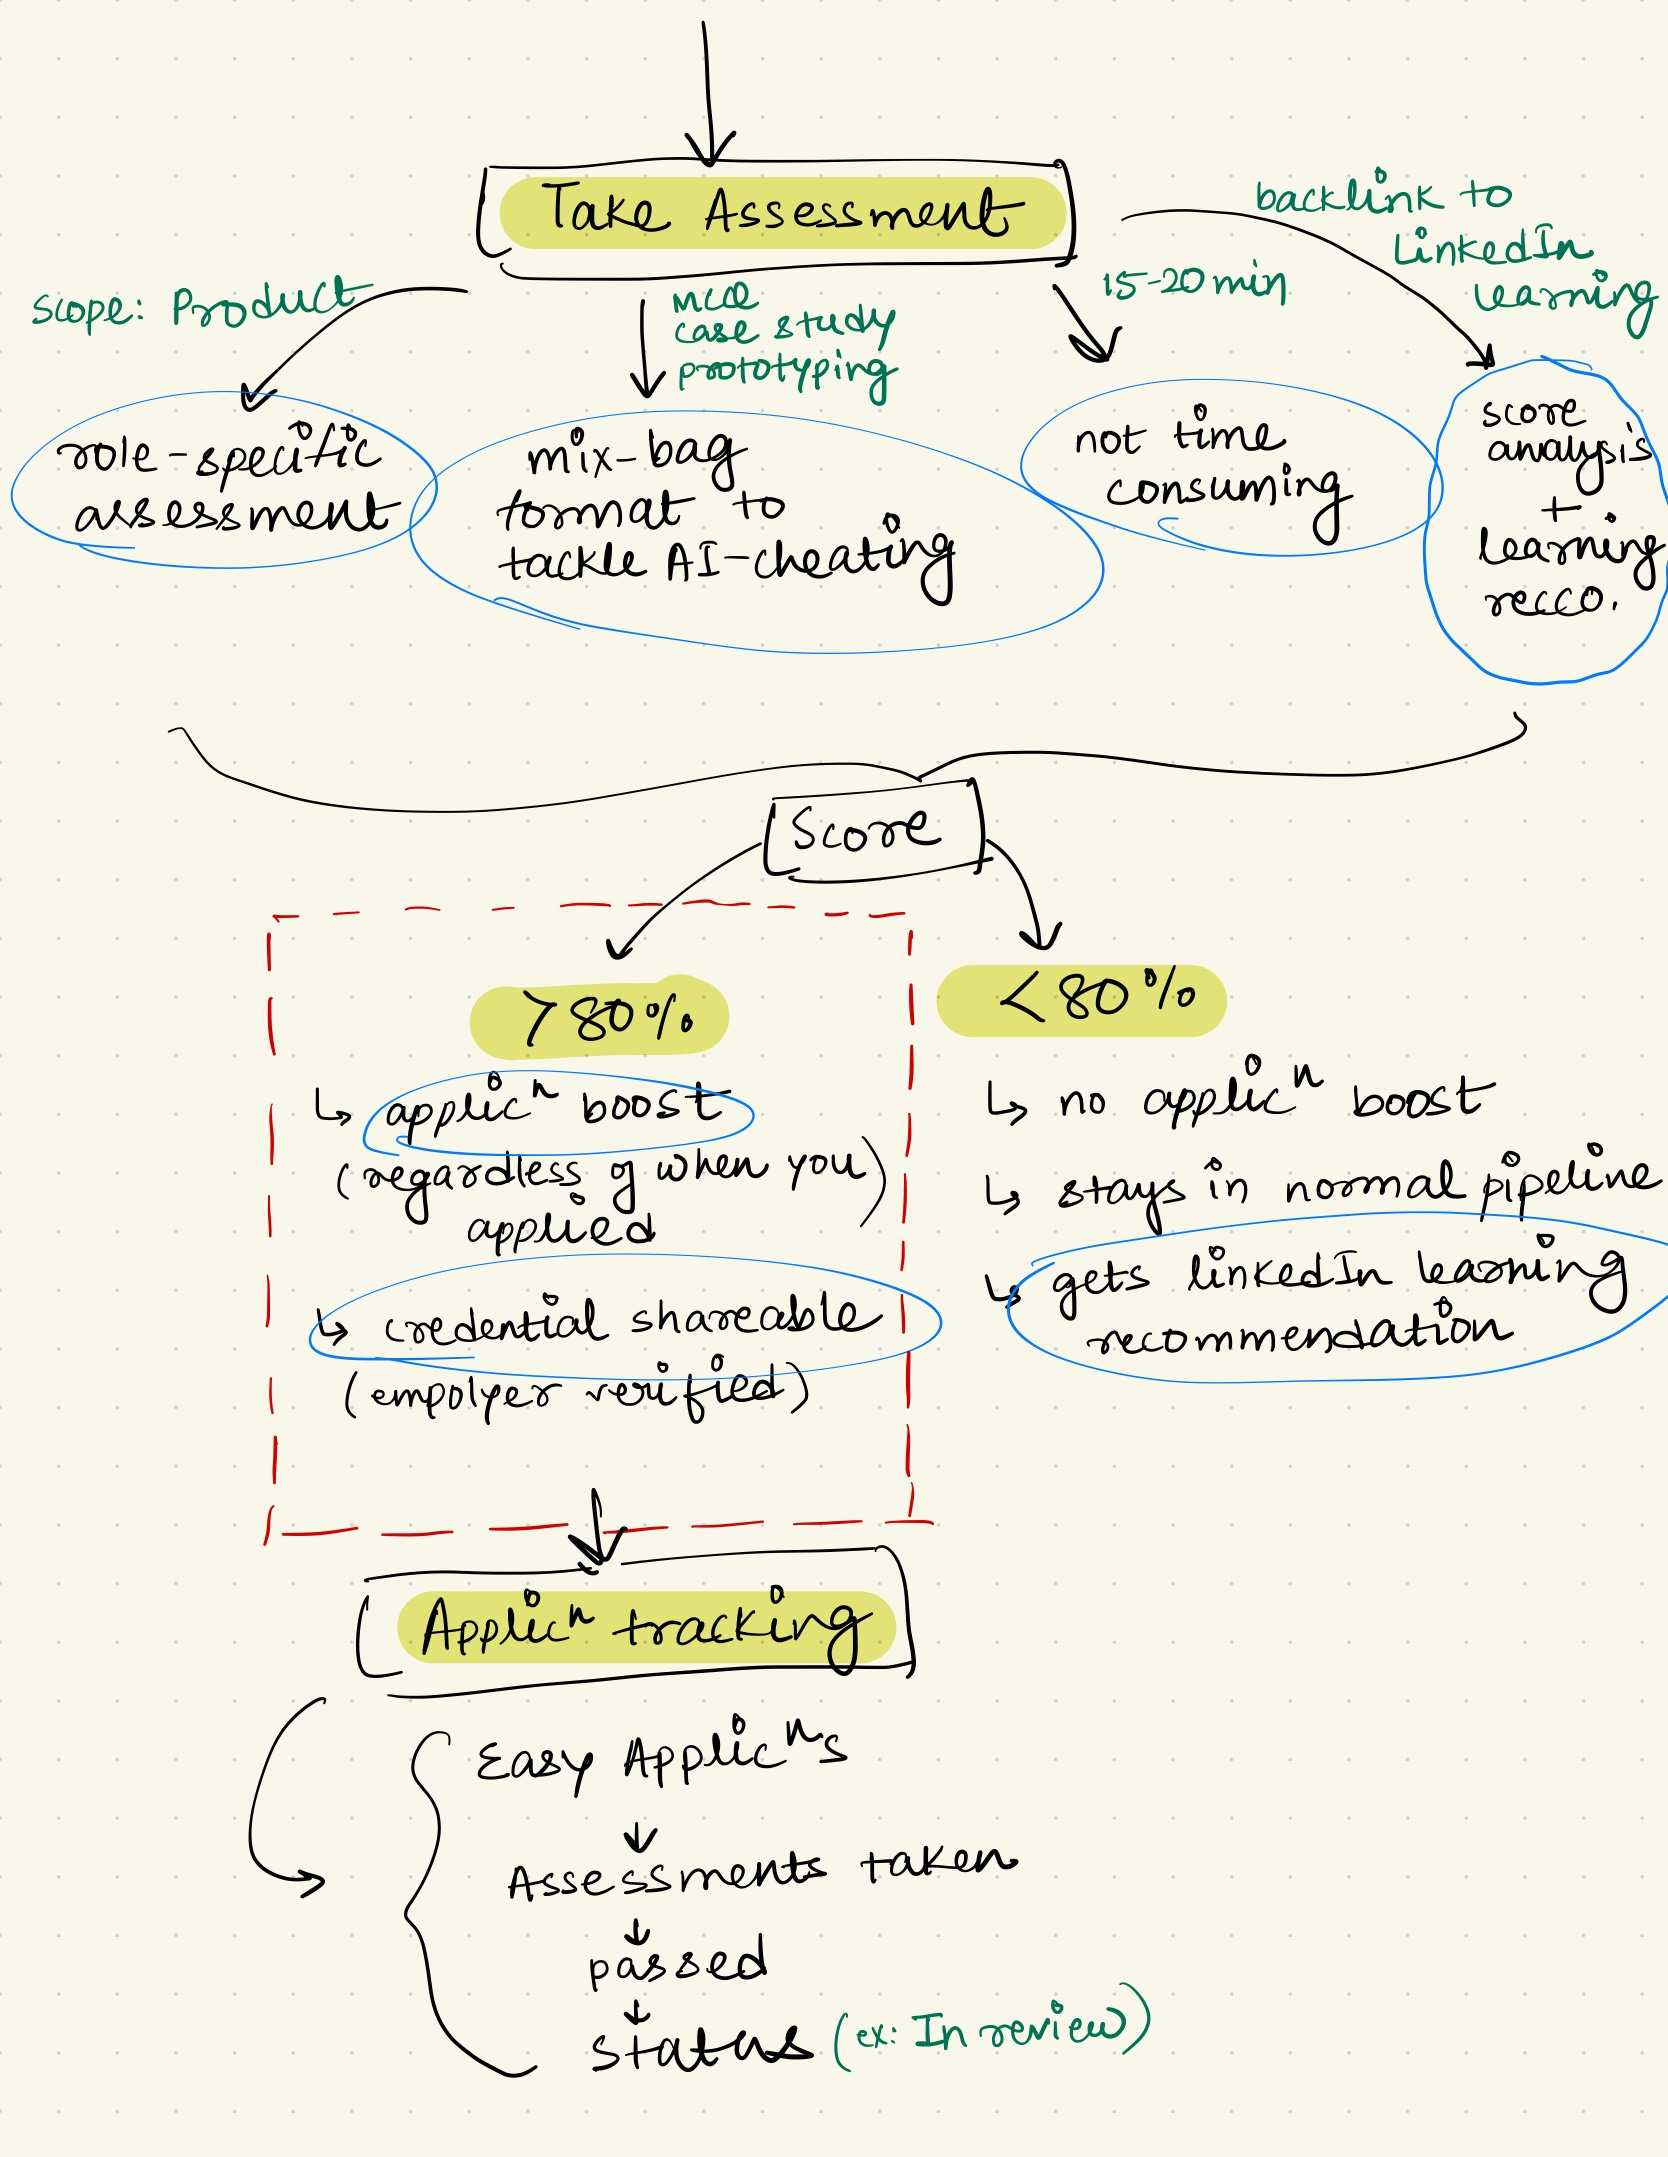 Take Assessment
backlink to
LinkedIn
learning
Scope: Product
MCQ
case study
prototyping
15-20 min
role-specific
assessment
mix-bag
format to
tackle AI-cheating
not time
consuming
score
analysis
+
learning
recco.
Score
>80%
↳ applicⁿ boost
(regardless of when you
applied)
↳ credential shareable
(empolyer verified)
<80%
↳ no applicⁿ boost
↳ stays in normal pipeline
↳ gets linkedIn learning
recommendation
Applicⁿ tracking
Easy Applicⁿs
↓
Assessments taken
↓
passed
↓
status (ex: In review)